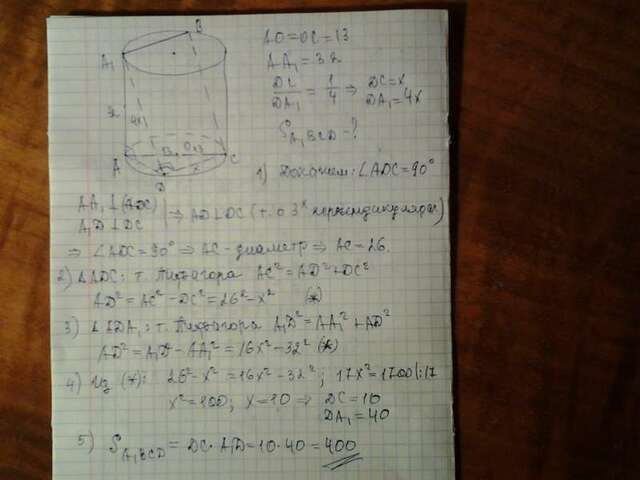 B
A₁
AO = OC = 13
AA₁ = 32
DC/DA₁ = 1/4 ⇒ DC = x
DA₁ = 4x
S A₁BCD = ?
32
4x
A
O
13
C
x
D
1) Докажем: ∠ADC = 90°
AA₁ ⊥ (ADC)
A₁D ⊥ DC
⇒ AD ⊥ DC (т. о 3ˣ перпендикулярах)
⇒ ∠ADC = 90° ⇒ AC - диаметр ⇒ AC = 26.
2) △ADC: т. Пифагора AC² = AD² + DC²
AD² = AC² - DC² = 26² - x² (*)
3) △ADA₁: т. Пифагора A₁D² = AA₁² + AD²
AD² = A₁D² - AA₁² = 16x² - 32² (*)
4) Из (*): 26² - x² = 16x² - 32²; 17x² = 1700 |:17
x² = 100; x = 10 ⇒ DC = 10
DA₁ = 40
5) S A₁BCD = DC · A₁D = 10 · 40 = 400